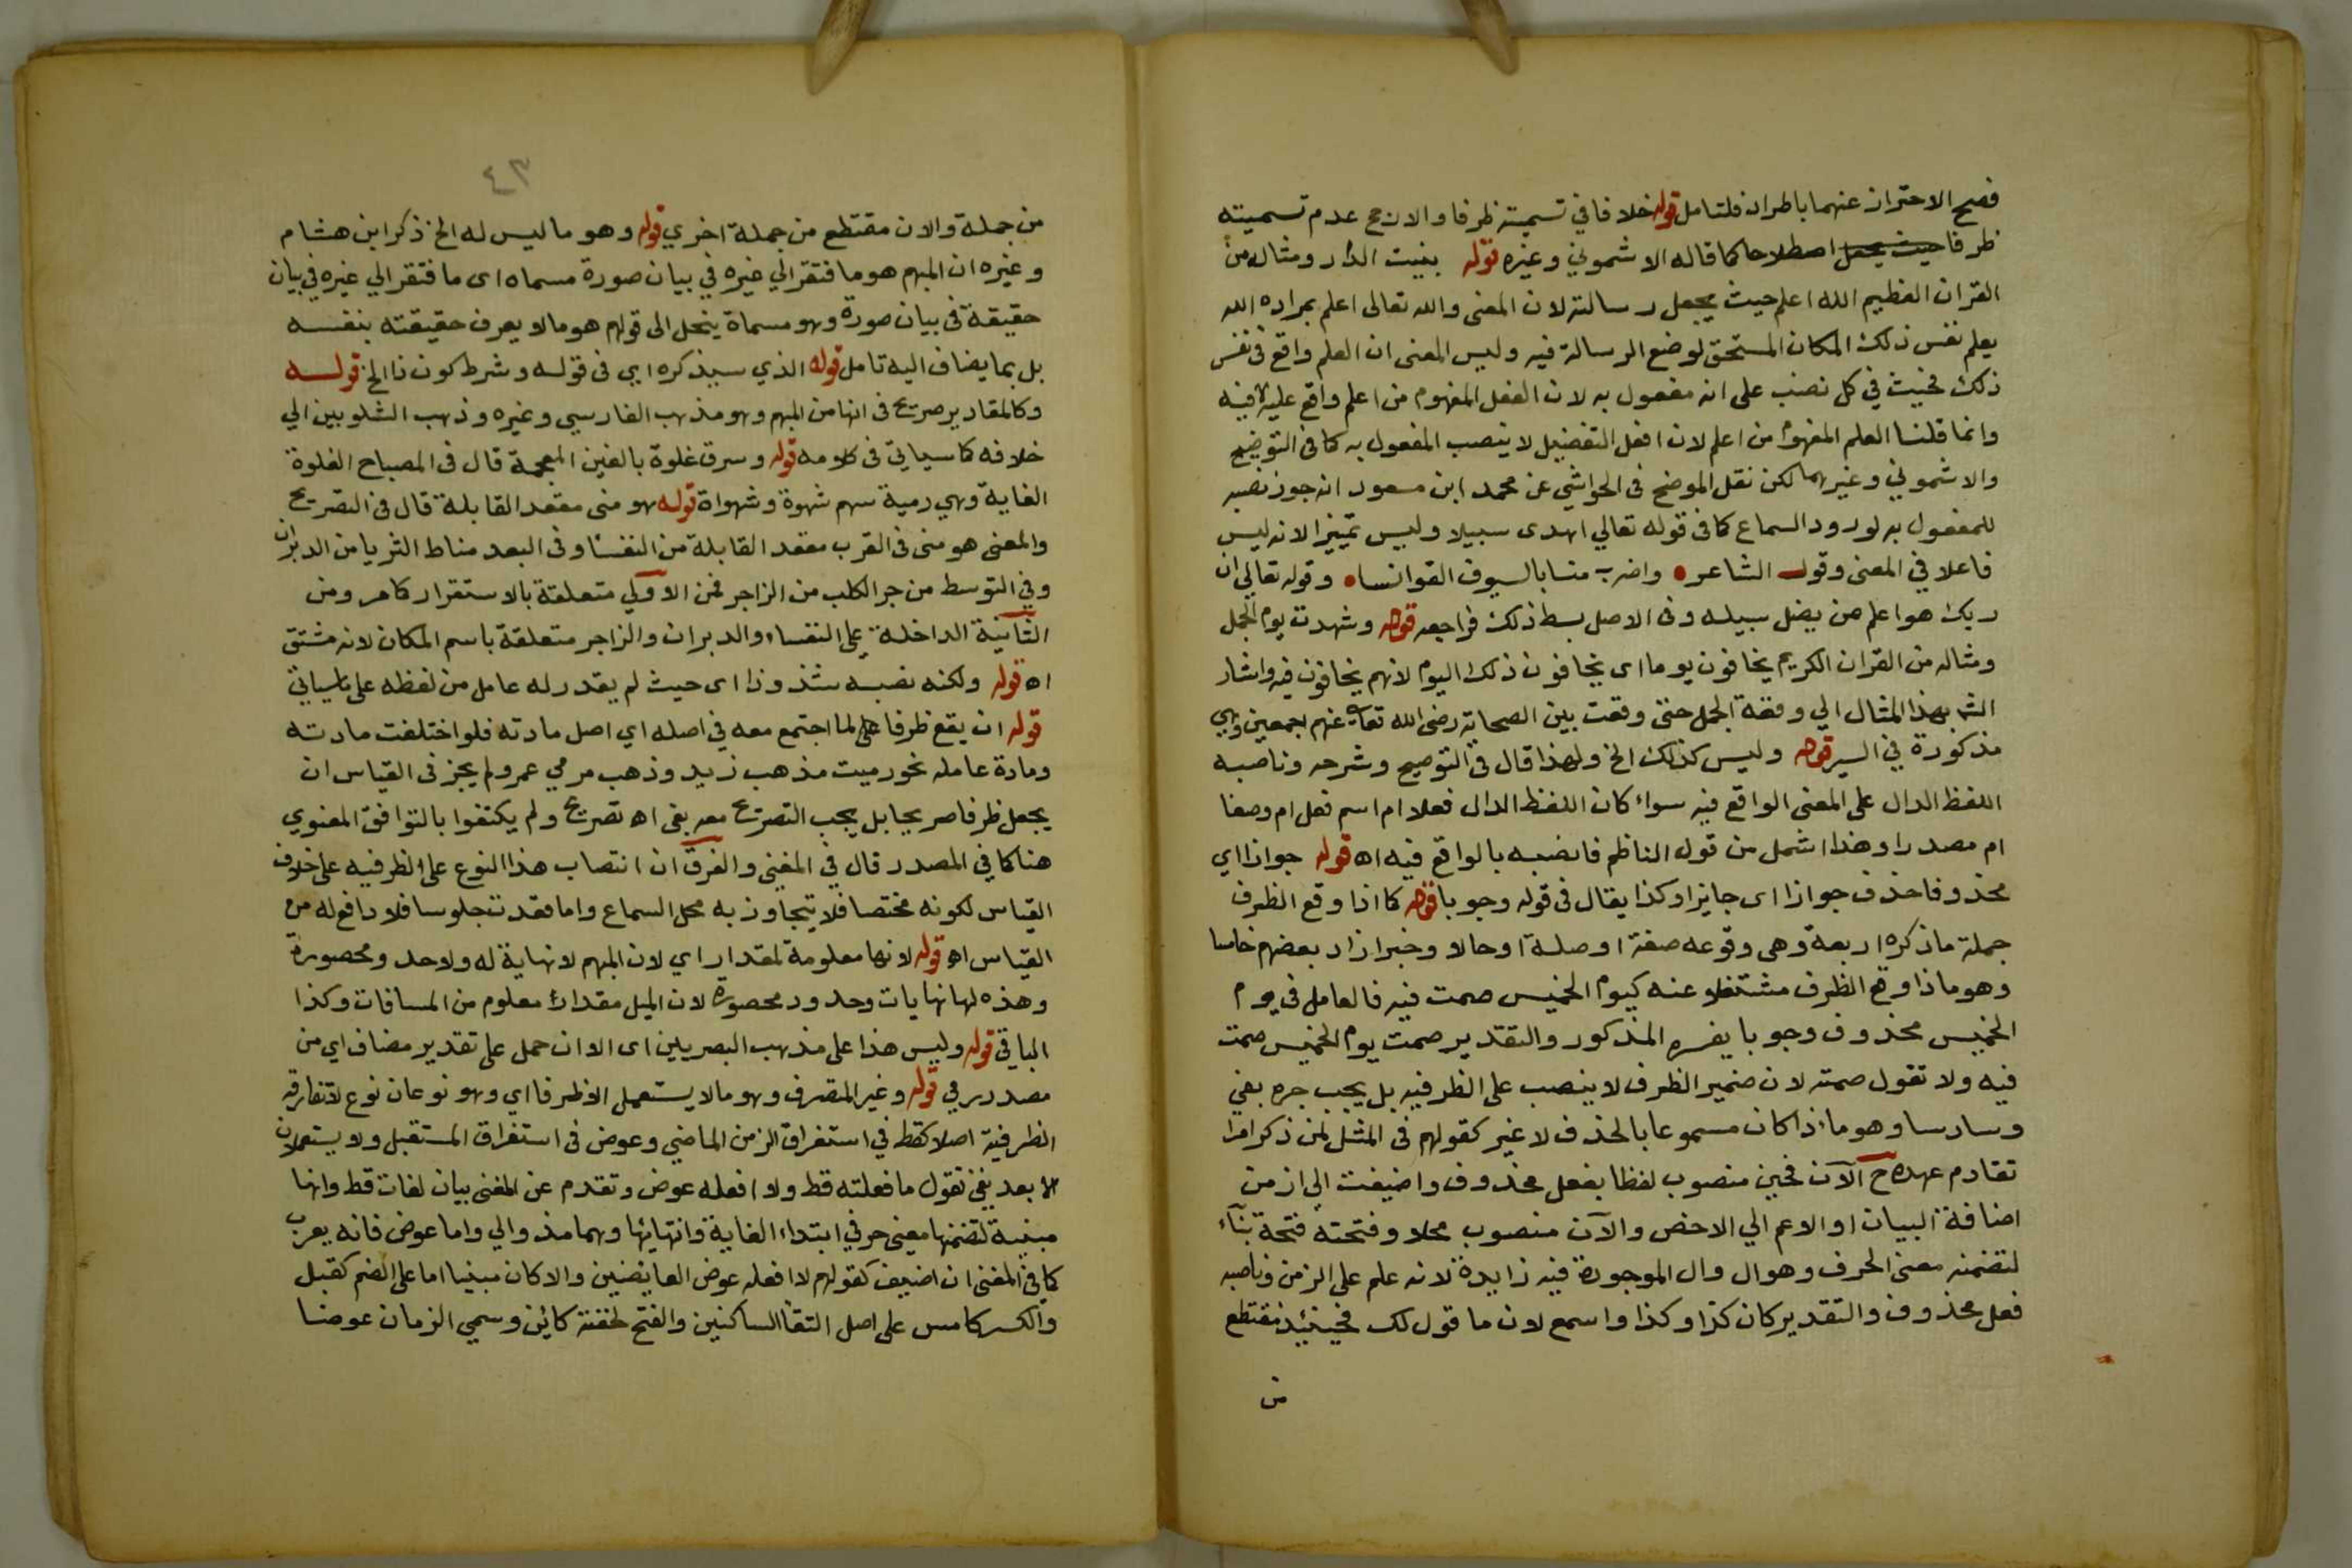 فصح الاحتراز عنهما باطراد فلتامل قوله خلافا في تسميته ظرفا والارجح عدم تسميته
ظرفا حيث يجعل اصطلاحا كما قاله الاشموني وغيره قوله بنيت الدار ومثاله من
القران العظيم الله اعلم حيث يجعل رسالته لان المعنى والله تعالى اعلم بمراده الله
يعلم نفس ذلك المكان المستحق لوضع الرسالة فيه وليس المعنى ان العلم واقع في نفس
ذلك فحيث في كل نصب على انه مفعول به لان الفعل المفهوم من اعلم واقع عليه لا فيه
وانما قلنا العلم المفهوم من اعلم لان افعل التفضيل لا ينصب المفعول به كما في التوضيح
والاشموني وغيرهما لكن نقل الموضح في الحواشي عن محمد ابن مسعود انه جوز نصبه
للمفعول به لورود السماع كما في قوله تعالي اهدى سبيلا وليس تمييزا لانه ليس
فاعلا في المعنى وقول الشاعر • واضرب منا بالسيوف القوانسا • وقوله تعالي ان
ربك هو اعلم من يضل سبيله وفي الاصل بسط ذلك فراجعه قوله وشهدت يوم الجمل
ومثاله من القران الكريم يخافون يوما اى يخافون ذلك اليوم لانهم يخافون فيه واشار
الش بهذا المثال الي وقعة الجمل حتى وقعت بين الصحابة رضى الله تعالى عنهم اجمعين وهي
مذكورة في السير قوله وليس كذلك الخ ولهذا قال في التوضيح وشرحه وناصبه
اللفظ الدال على المعنى الواقع فيه سواء كان اللفظ الدال فعلا ام اسم فعل ام وصفا
ام مصدرا وهذا اشمل من قول الناظم فانصبه بالواقع فيه اه قوله جوازا اي
محذوفا حذف جوازا اى جايزا وكذا يقال في قوله وجوبا قوله كما اذا وقع الظرف
جملة ما ذكره اربعة وهى وقوعه صفة او صلة او حالا وخبرا زاد بعضهم خامسا
وهو ما اذا وقع الظرف مشتغلا عنه كيوم الخميس صمت فيه فالعامل في يوم
الخميس محذوف وجوبا يفسره المذكور والتقدير صمت يوم الخميس صمت
فيه ولا تقول صمته لان ضمير الظرف لا ينصب على الظرفيه بل يجب جره بفي
وسادسا وهو ما اذا كان مسموعا بالحذف لا غير كقولهم في المثل لمن ذكر امرا
تقادم عهده ح الآن فحين منصوب لفظا بفعل محذوف واضيفت الى از من
اضافة البيان او الاعم الي الاخص والآن منصوب محلا وفتحته فتحة بناء
لتضمنه معنى الحرف وهو ال وال الموجودة فيه زايدة لانه علم على الزمن وناصبه
فعل محذوف والتقدير كان كذا وكذا واسمع لان ما قول لك فحينئيد مقتطع
من
٤٣
من جملة والان مقتطع من جملة اخري قوله وهو ما ليس له الخ ذكر ابن هشام
وغيره ان المبهم هو ما فتقر الي غيره في بيان صورة مسماه اى ما فتقر الي غيره في بيان
حقيقة في بيان صورة وهو مسماة ينحل الى قولهم هو ما لا يعرف حقيقته بنفسه
بل بما يضاف اليه تامل قوله الذي سيذكره اي في قوله وشرط كون ذا الخ قوله
وكالمقادير صريح في انها من المبهم وهو مذهب الفارسي وغيره وذهب الشلوبين الي
خلافه كما سياتي في كلامه قوله وسرق غلوة بالغين المعجمة قال في المصباح الغلوة
الغاية وهي رمية سهم شهوة وشهواة قوله هو منى مقعد القابلة قال في التصريح
والمعنى هو منى في القرب مقعد القابلة من النفسا وفي البعد مناط الثريا من الدبران
وفي التوسط من جر الكلب من الزاجر فمن الاولي متعلقة بالاستقرار كما مر ومن
الثانية الداخلة على النفساء والدبران والزاجر متعلقة باسم المكان لانه مشتق
اه قوله ولكنه نصبه شذوذا اى حيث لم يقدر له عامل من لفظه على ما سياتي
قوله ان يقع ظرفا على لما اجتمع معه في اصله اي اصل مادته فلو اختلفت مادته
ومادة عامله نحو رميت مذهب زيد وذهب مرمي عمرو لم يجز في القياس ان
يجعل ظرفا صريحا بل يجب التصريح معه بفى اه تصريح ولم يكتفوا بالتوافق المعنوي
هنا كما في المصدر قال في المغني والفرق ان انتصاب هذا النوع على الظرفيه على خلاف
القياس لكونه مختصا فلا يتجاوز به محل السماع واما قعدت جلوسا فلا دافع له من
القياس اه قوله لانها معلومة لمقدار اي لان المبهم لا نهاية له ولا حد ومحصورة
وهذه لها نهايات وحدود محصورة لان الميل مقداره معلوم من المسافات وكذا
الباقي قوله وليس هذا على مذهب البصريين اى الا ان حمل على تقدير مضاف اي من
مصدر رمي قوله وغير المتصرف وهو ما لا يستعمل الا ظرفا اي وهو نوعان نوع لا تفارقه
الظرفية اصلا كقط في استغراق الزمن الماضي وعوض في استغراق المستقبل ولا يستعملان
الا بعد نفي تقول ما فعلته قط ولا افعله عوض وتقدم عن المغنى بيان لغات قط وانها
مبنية لتضمنها معنى حرفي ابتداء الغاية وانتهائها وهما مذ والي واما عوض فانه يعرب
كما في المغنى ان اضيف كقولهم لا افعله عوض العايضين والا كان مبنيا اما على الضم كقبل
والكسر كامس على اصل التقا الساكنين والفتح لخفته كاين وسمي الزمان عوضا